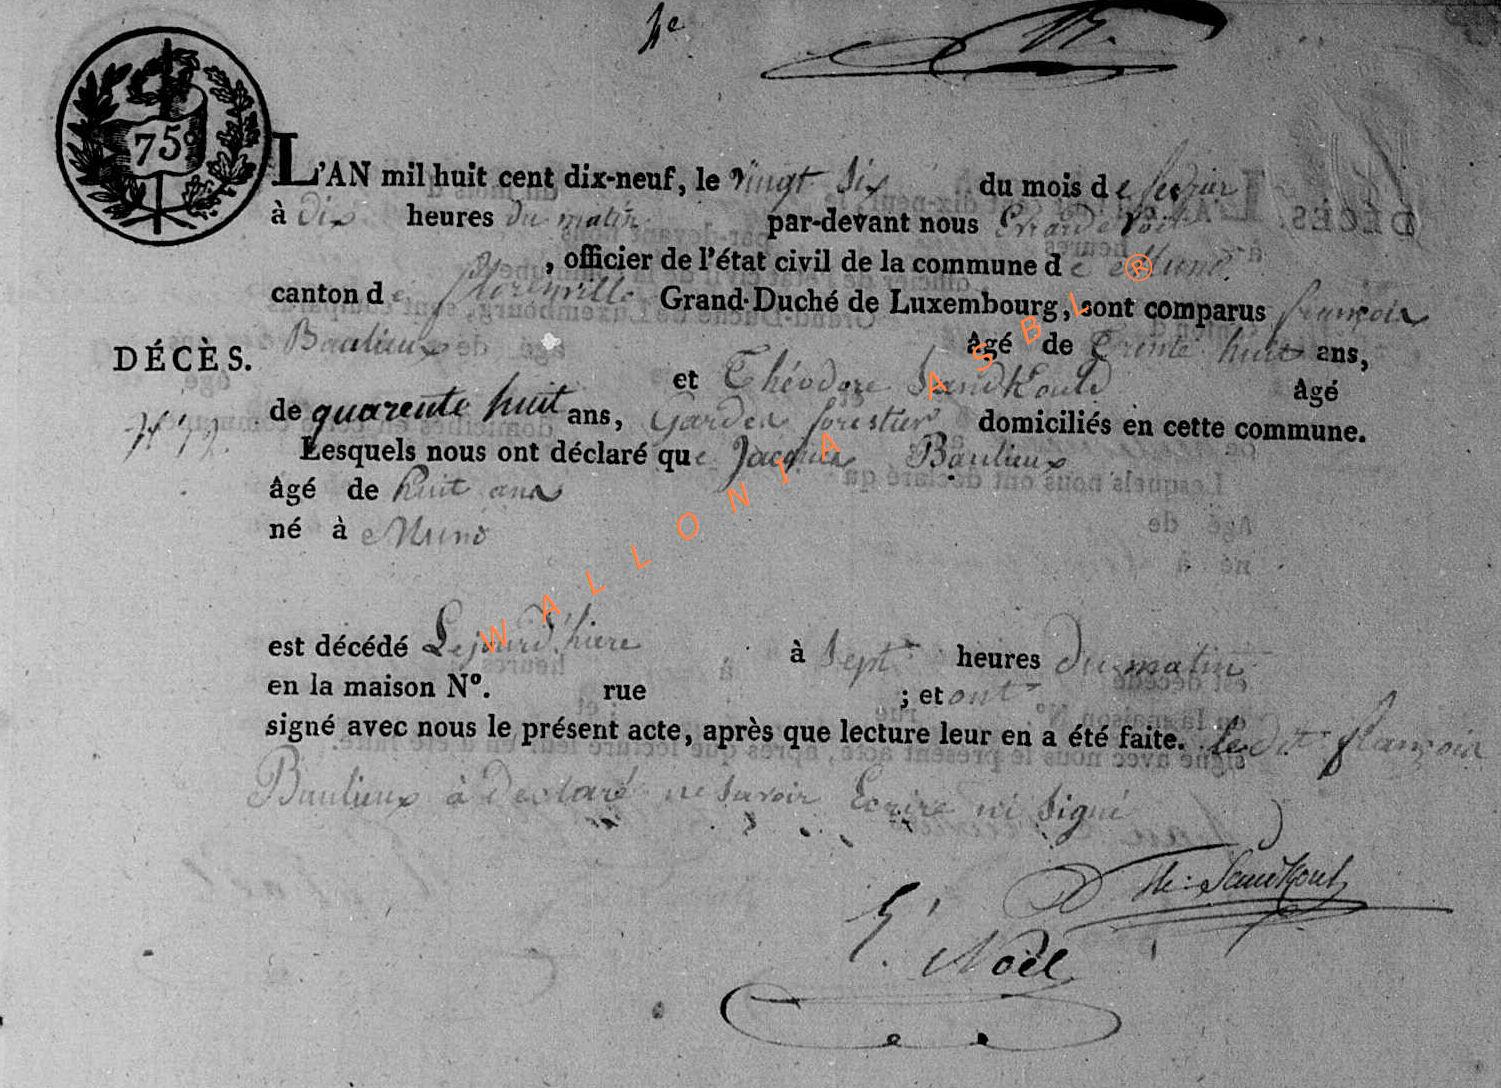 4e
75c
L'AN mil huit cent dix-neuf, le vingt six du mois de fevrier
à dix heures du matin par-devant nous
, officier de l'état civil de la commune de Muno
canton de florenville Grand-Duché de Luxembourg, sont comparus françois
Baulieux âgé de Trente huit ans,
DÉCÈS.
et Théodore Sandkoule âgé
de quarente huit ans, Garder forestier domiciliés en cette commune.
Lesquels nous ont déclaré que Jacques Baulieux
âgé de huit ans
né à Muno
est décédé Le jourd'hiere à sept heures du matin
en la maison Nº. rue ; et ont
signé avec nous le présent acte, après que lecture leur en a été faite. le dit françois
Baulieux à declaré ne savoir Ecrire ni signé
E. Noël
WALLONIA ASBL ®